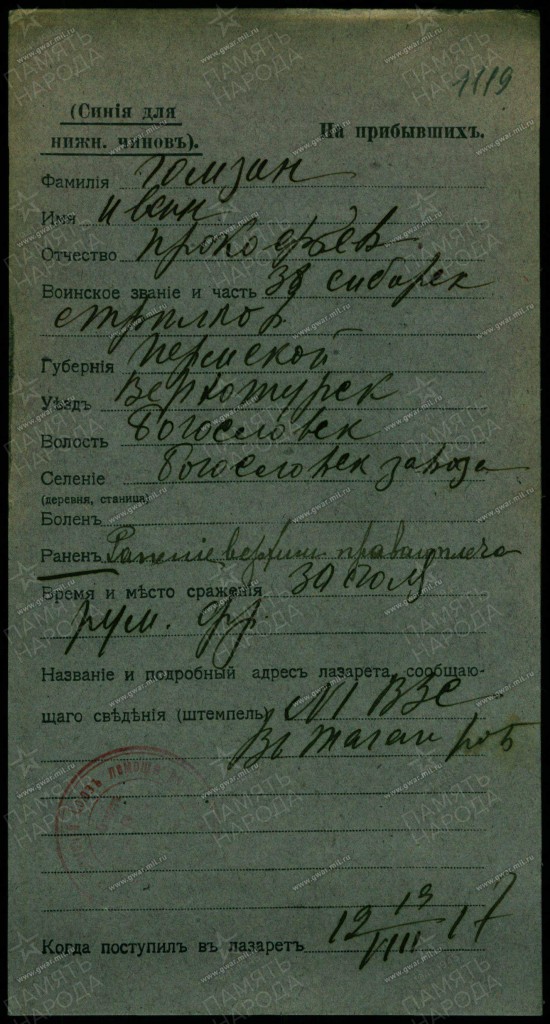 1119
(Синія для
нижн. чиновъ).
На прибывшихъ.
Фамилія Гомзин
Имя Иван
Отчество Прокофьев
Воинское званіе и часть 39 сибирск
Губернія Пермской
Уѣздъ Верхотурск
Волость Богословск
Селеніе Богословск завода
(деревня, станица)
Боленъ
Раненъ Ранение верхн правого плеча
Время и мѣсто сраженія 30
рум. фр.
Названіе и подробный адресъ лазарета, сообщаю-
щаго свѣдѣнія (штемпель) №1 ВЗС
Въ Таганрогѣ
Когда поступилъ въ лазаретъ 19 VIII 17